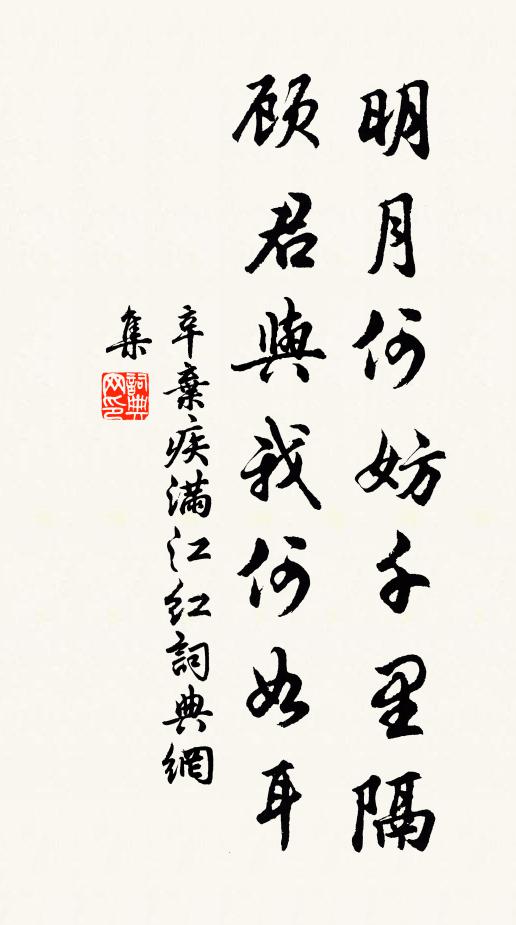 明月何妨千里隔
顾君與我何如耳
辛棄疾满江红詞典網
集
詞典网印